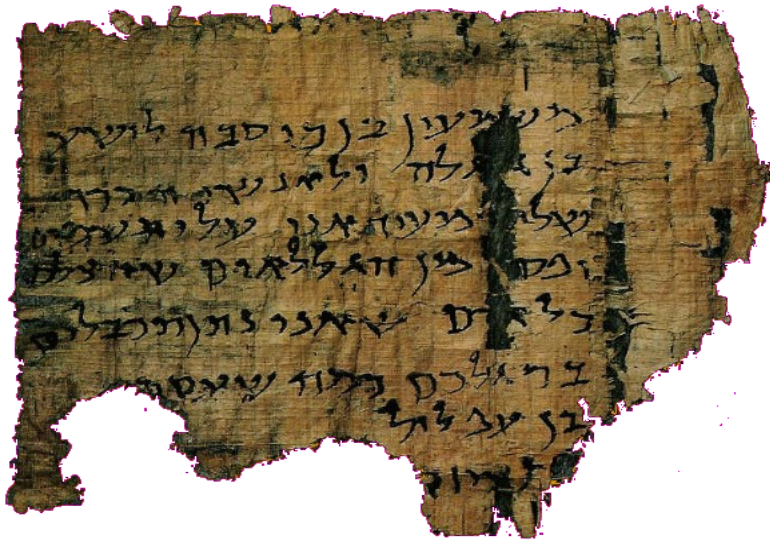 משמעון בן כוסבה לישע
בן גלגלה ולאנשי הכרך
שלו מעיד אני עלי תשמים
יפס מן הגללאים שהצלתם
כל אדם שאני נתן תכבלים
ברגלכם כמה שעסתי
לבן עפלול